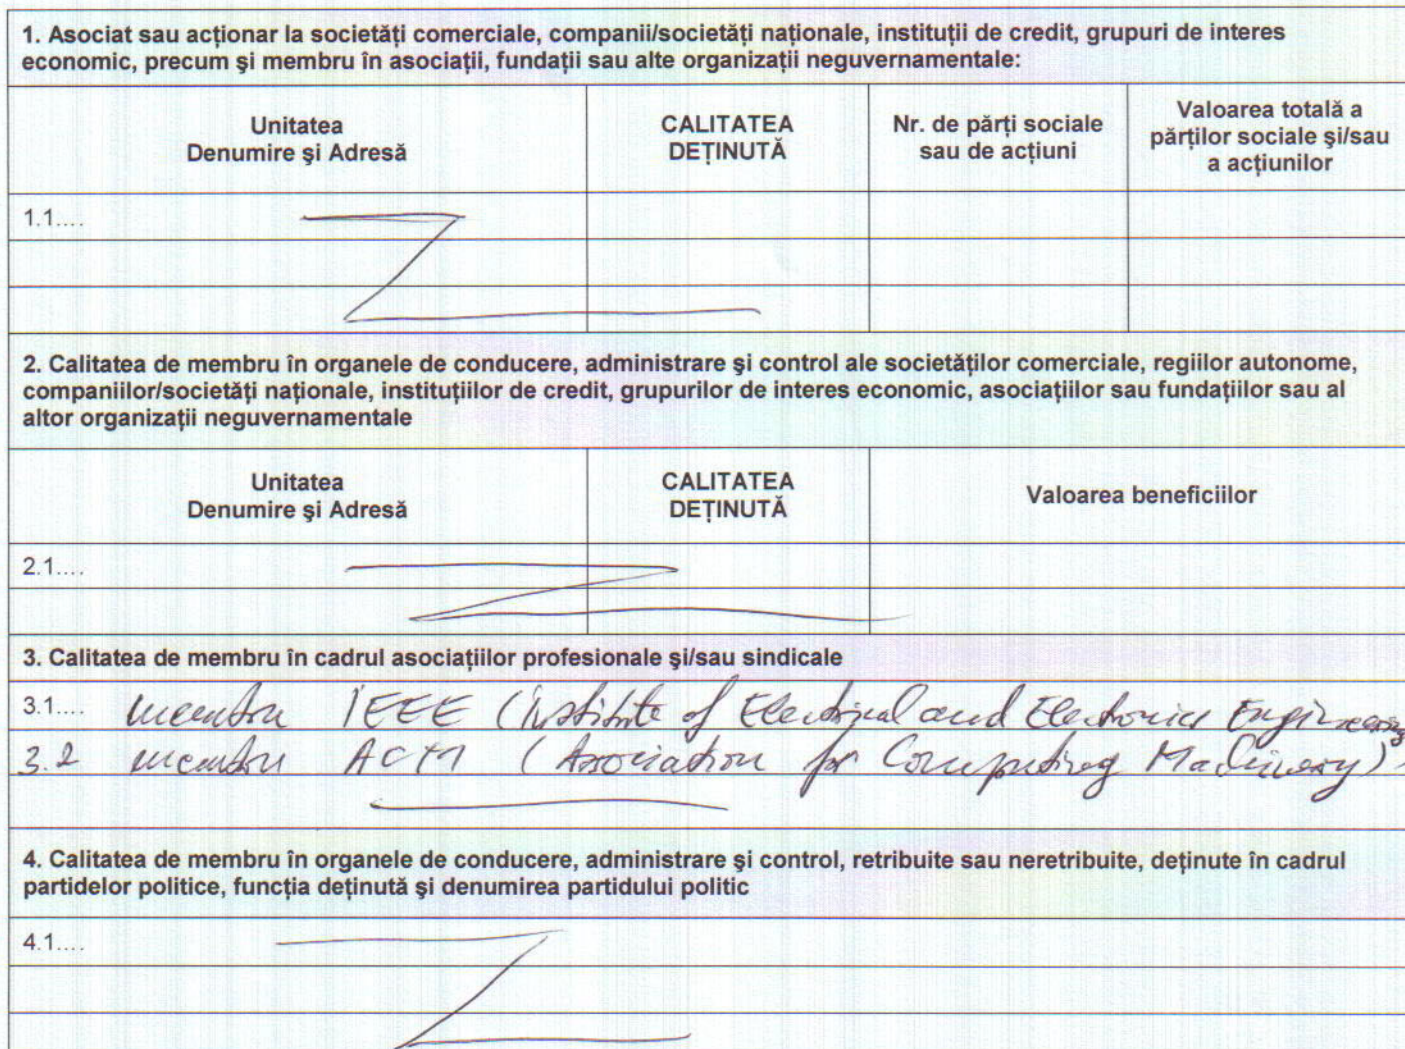 1. Asociat sau acţionar la societăţi comerciale, companii/societăţi naţionale, instituţii de credit, grupuri de interes
economic, precum şi membru în asociaţii, fundaţii sau alte organizaţii neguvernamentale:
Unitatea
Denumire şi Adresă
CALITATEA
DEŢINUTĂ
Nr. de părţi sociale
sau de acţiuni
Valoarea totală a
părţilor sociale şi/sau
a acţiunilor
1.1....
2. Calitatea de membru în organele de conducere, administrare şi control ale societăţilor comerciale, regiilor autonome,
companiilor/societăţi naţionale, instituţiilor de credit, grupurilor de interes economic, asociaţiilor sau fundaţiilor sau al
altor organizaţii neguvernamentale
Unitatea
Denumire şi Adresă
CALITATEA
DEŢINUTĂ
Valoarea beneficiilor
2.1....
3. Calitatea de membru în cadrul asociaţiilor profesionale şi/sau sindicale
3.1.... membru IEEE (Institute of Electrical and Electronics Engineering
3.2 membru ACM (Association for Computing Machinery)
4. Calitatea de membru în organele de conducere, administrare şi control, retribuite sau neretribuite, deţinute în cadrul
partidelor politice, funcţia deţinută şi denumirea partidului politic
4.1....